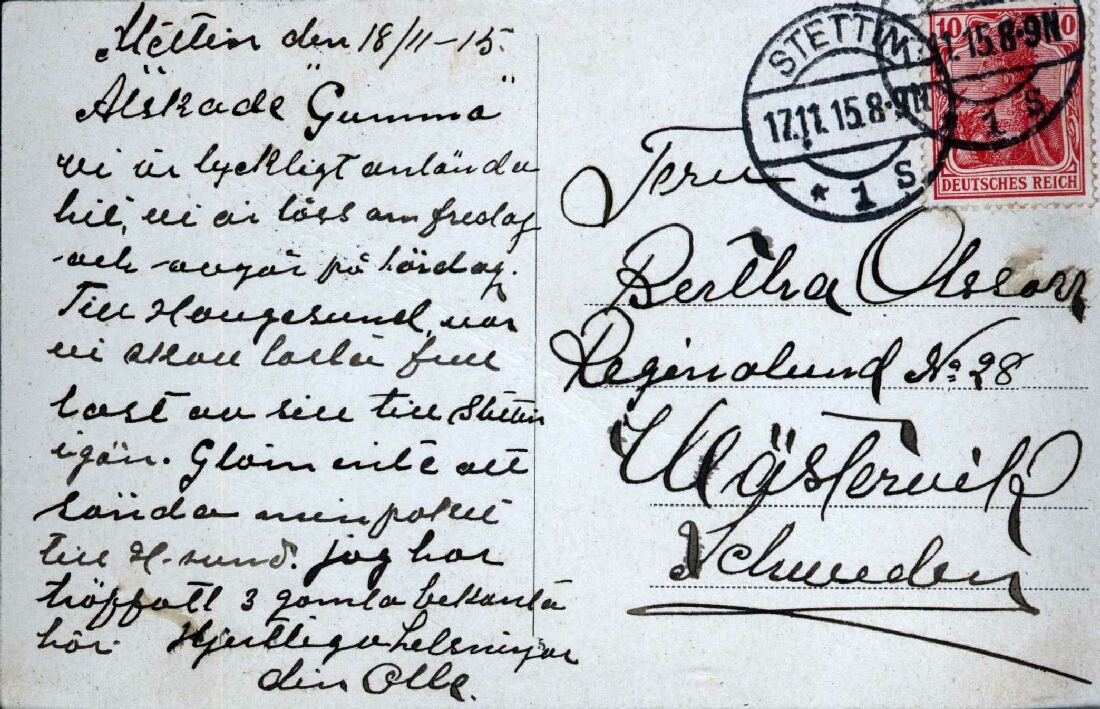 Stettin den 18/11-15.
Älskade "Gumma"
vi är lyckligt anlända
hit, vi är löss om fredag
och avgår på lördag.
Till Haugesund, var
vi skall lasta full
last av sill till Stettin
igän. Glöm inte att
sända min paket
till H-sund. jag har
träffatt 3 gamla bekanta
här. Hjertliga helsningar
din Olle.
STETTIN
17.11.15.8-9N
* 1 S
11.15.8-9N
1 S
10
DEUTSCHES REICH
Fru
Bertha Olsson
Reginalund No 28
Wästervik
Schweden